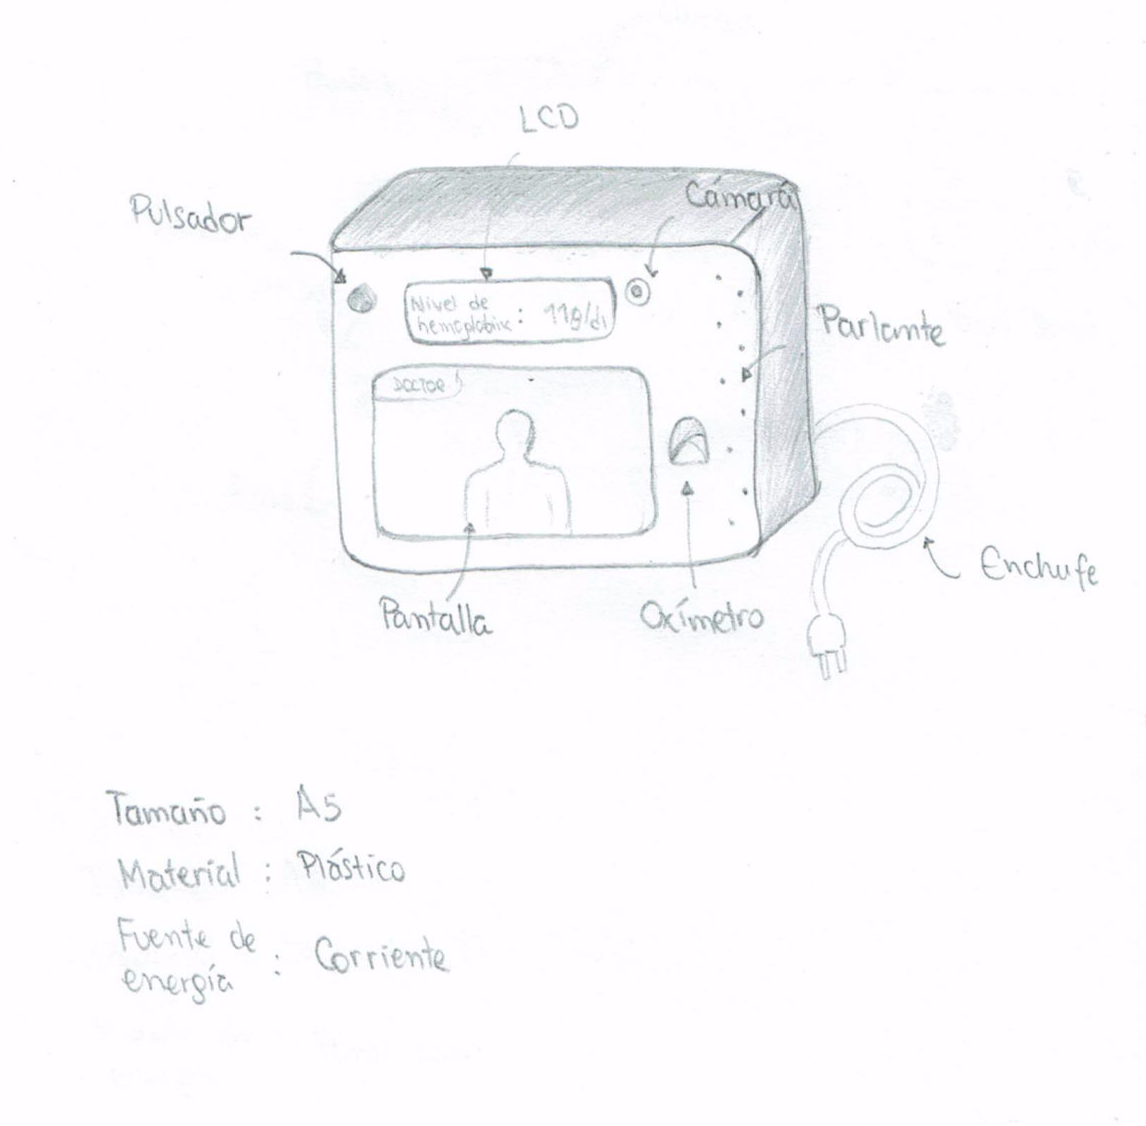 LCD
Pulsador
Cámará
Nivel de
hemoglobina : 11g/dl
Parlante
DOCTOR
Enchufe
Pantalla
Oxímetro
Tamaño : A5
Material : Plástico
Fuente de
energía : Corriente